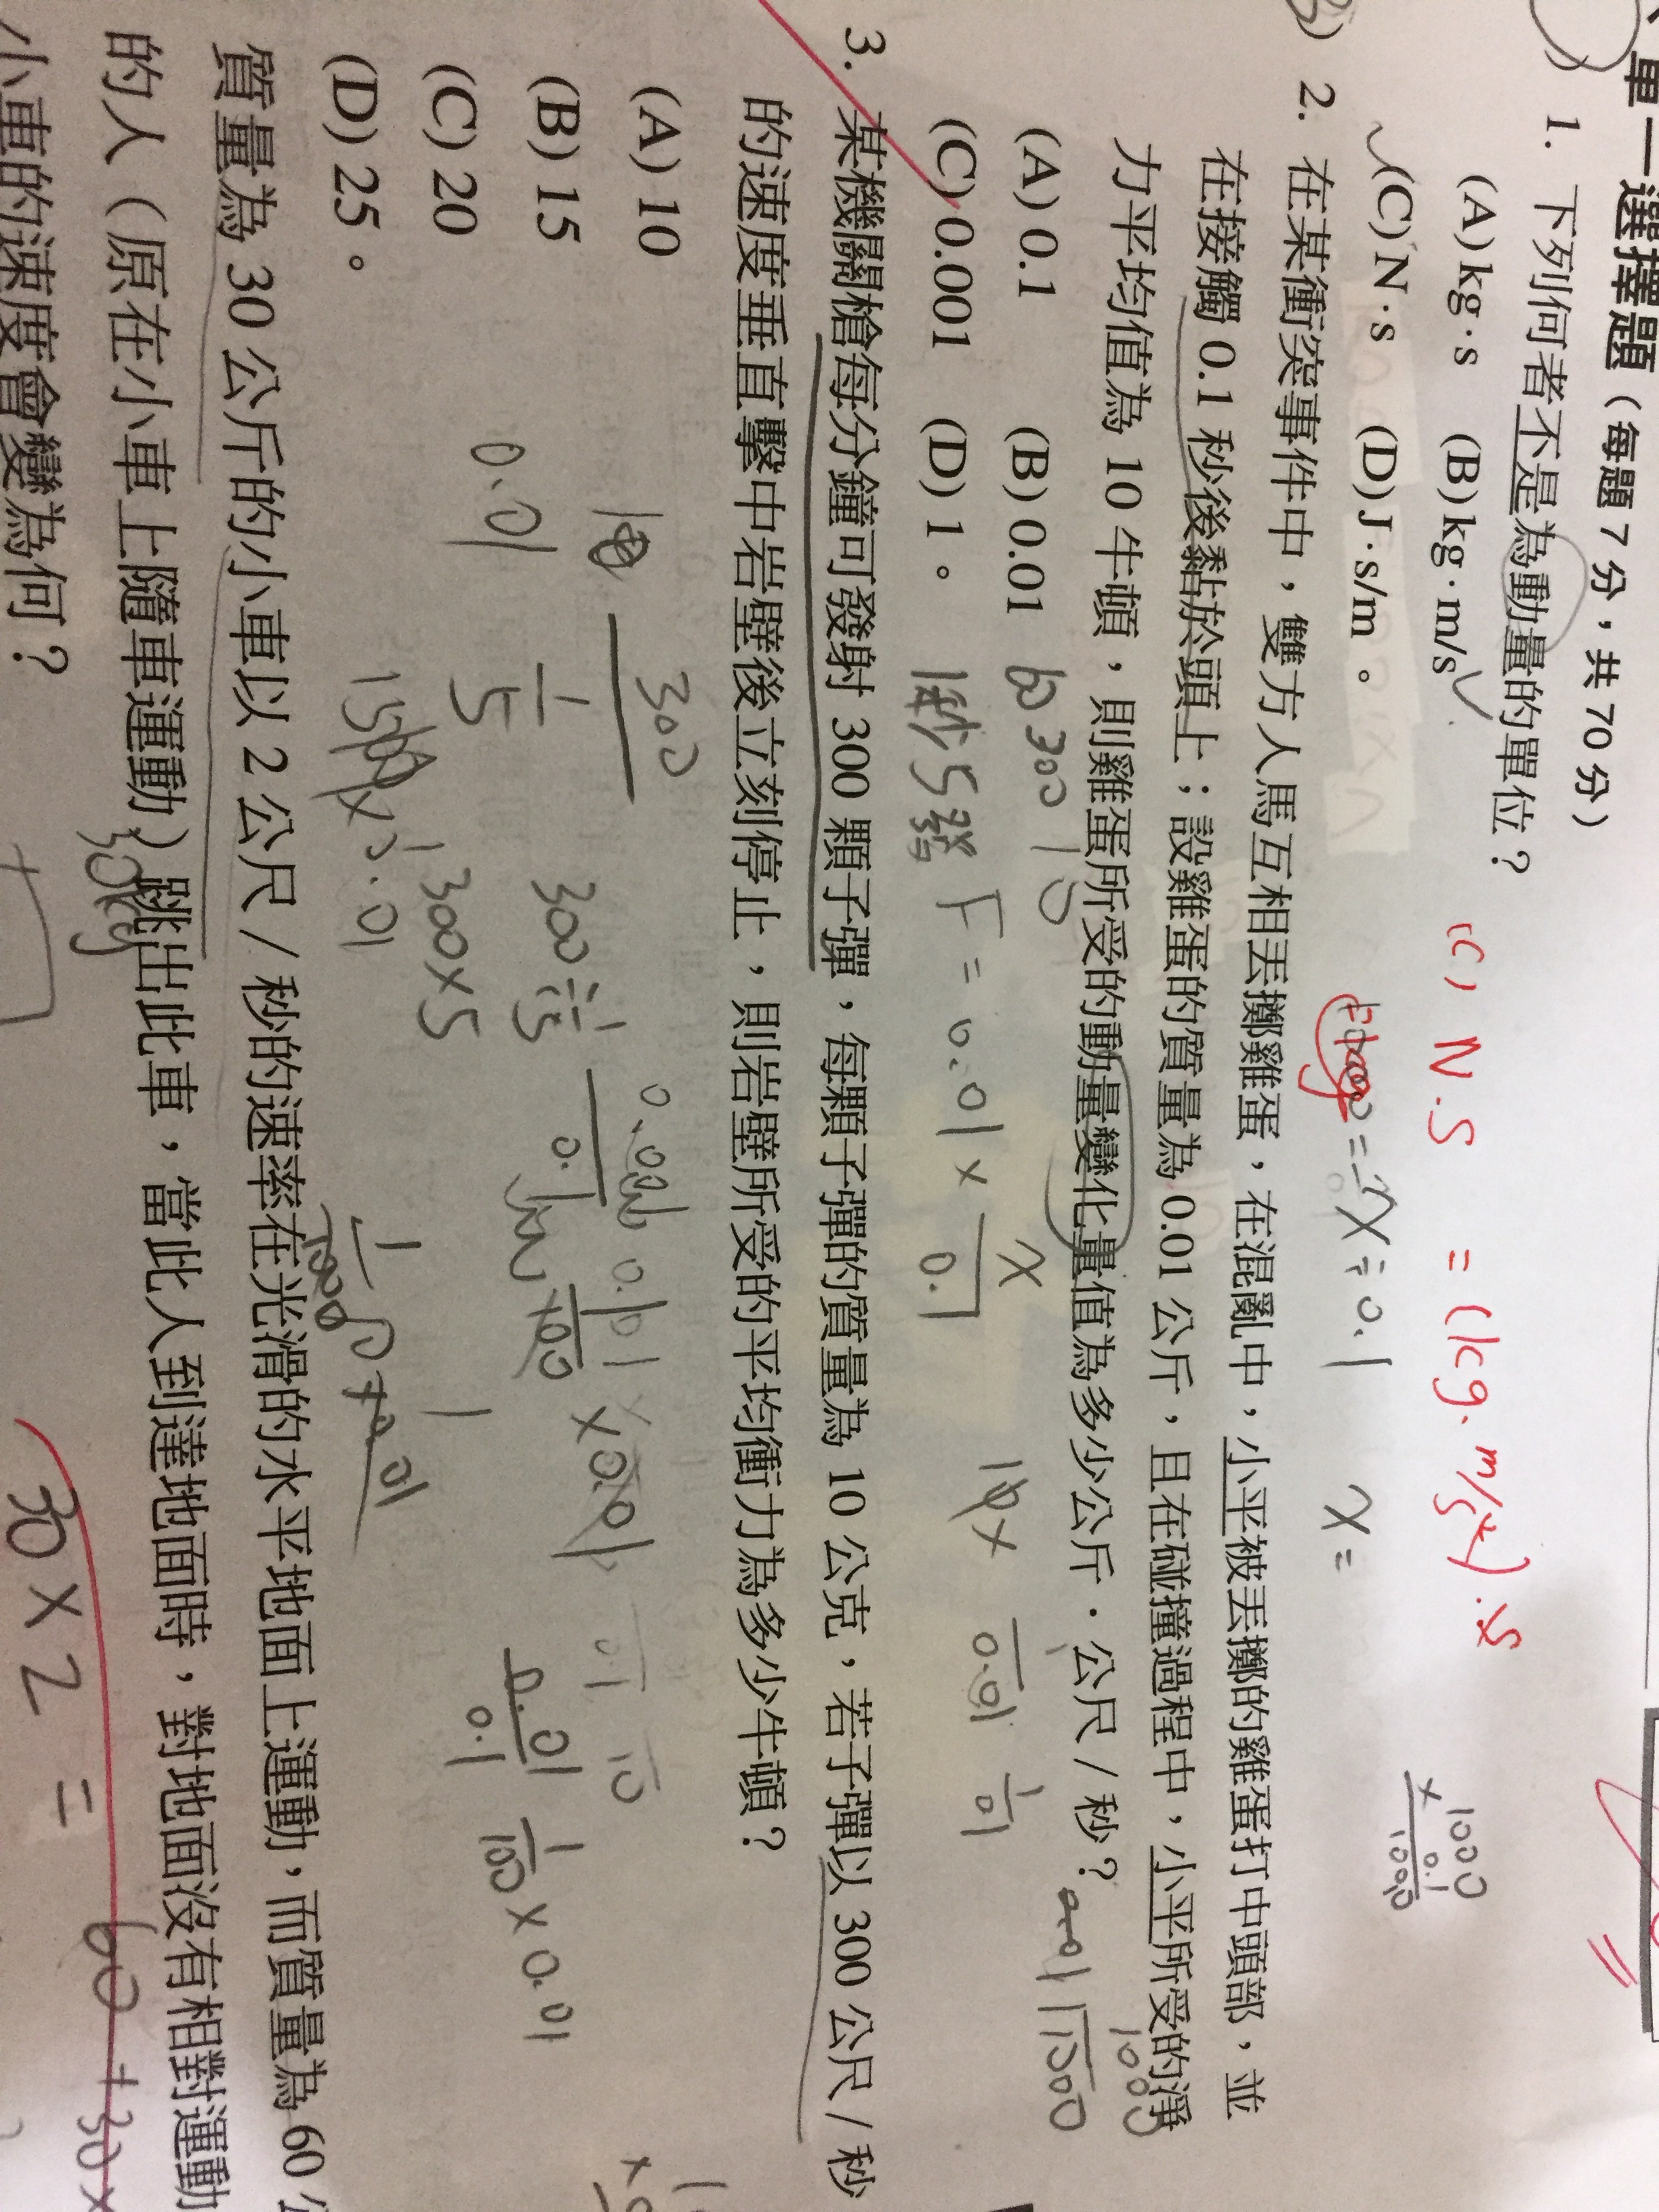 單一選擇題（每題 7 分，共 70 分）
1. 下列何者不是為動量的單位？
(A) kg·s (B) kg·m/s
(C) N·s (D) J·s/m。
(C) N·S = (kg·m/s²)·s
2. 在某衝突事件中，雙方人馬互相丟擲雞蛋，在混亂中，小平被丟擲的雞蛋打中頭部，並
在接觸 0.1 秒後黏於頭上；設雞蛋的質量為 0.01 公斤，且在碰撞過程中，小平所受的淨
力平均值為 10 牛頓，則雞蛋所受的動量變化量值為多少公斤·公尺/秒？
(A) 0.1 (B) 0.01
(C) 0.001 (D) 1。
1秒5發 F = 0.01 × x/0.1
3. 某機關槍每分鐘可發射 300 顆子彈，每顆子彈的質量為 10 公克，若子彈以 300 公尺/秒
的速度垂直擊中岩壁後立刻停止，則岩壁所受的平均衝力為多少牛頓？
(A) 10
(B) 15
(C) 20
(D) 25。
0.01
300
1/5
300 ÷ 1/5
300×5
1/100 × 0.01
質量為 30 公斤的小車以 2 公尺/秒的速率在光滑的水平地面上運動，而質量為 60
的人（原在小車上隨車運動）跳出此車，當此人到達地面時，對地面沒有相對運動
小車的速度會變為何？
30kg
30 × 2 = 60 + 30×